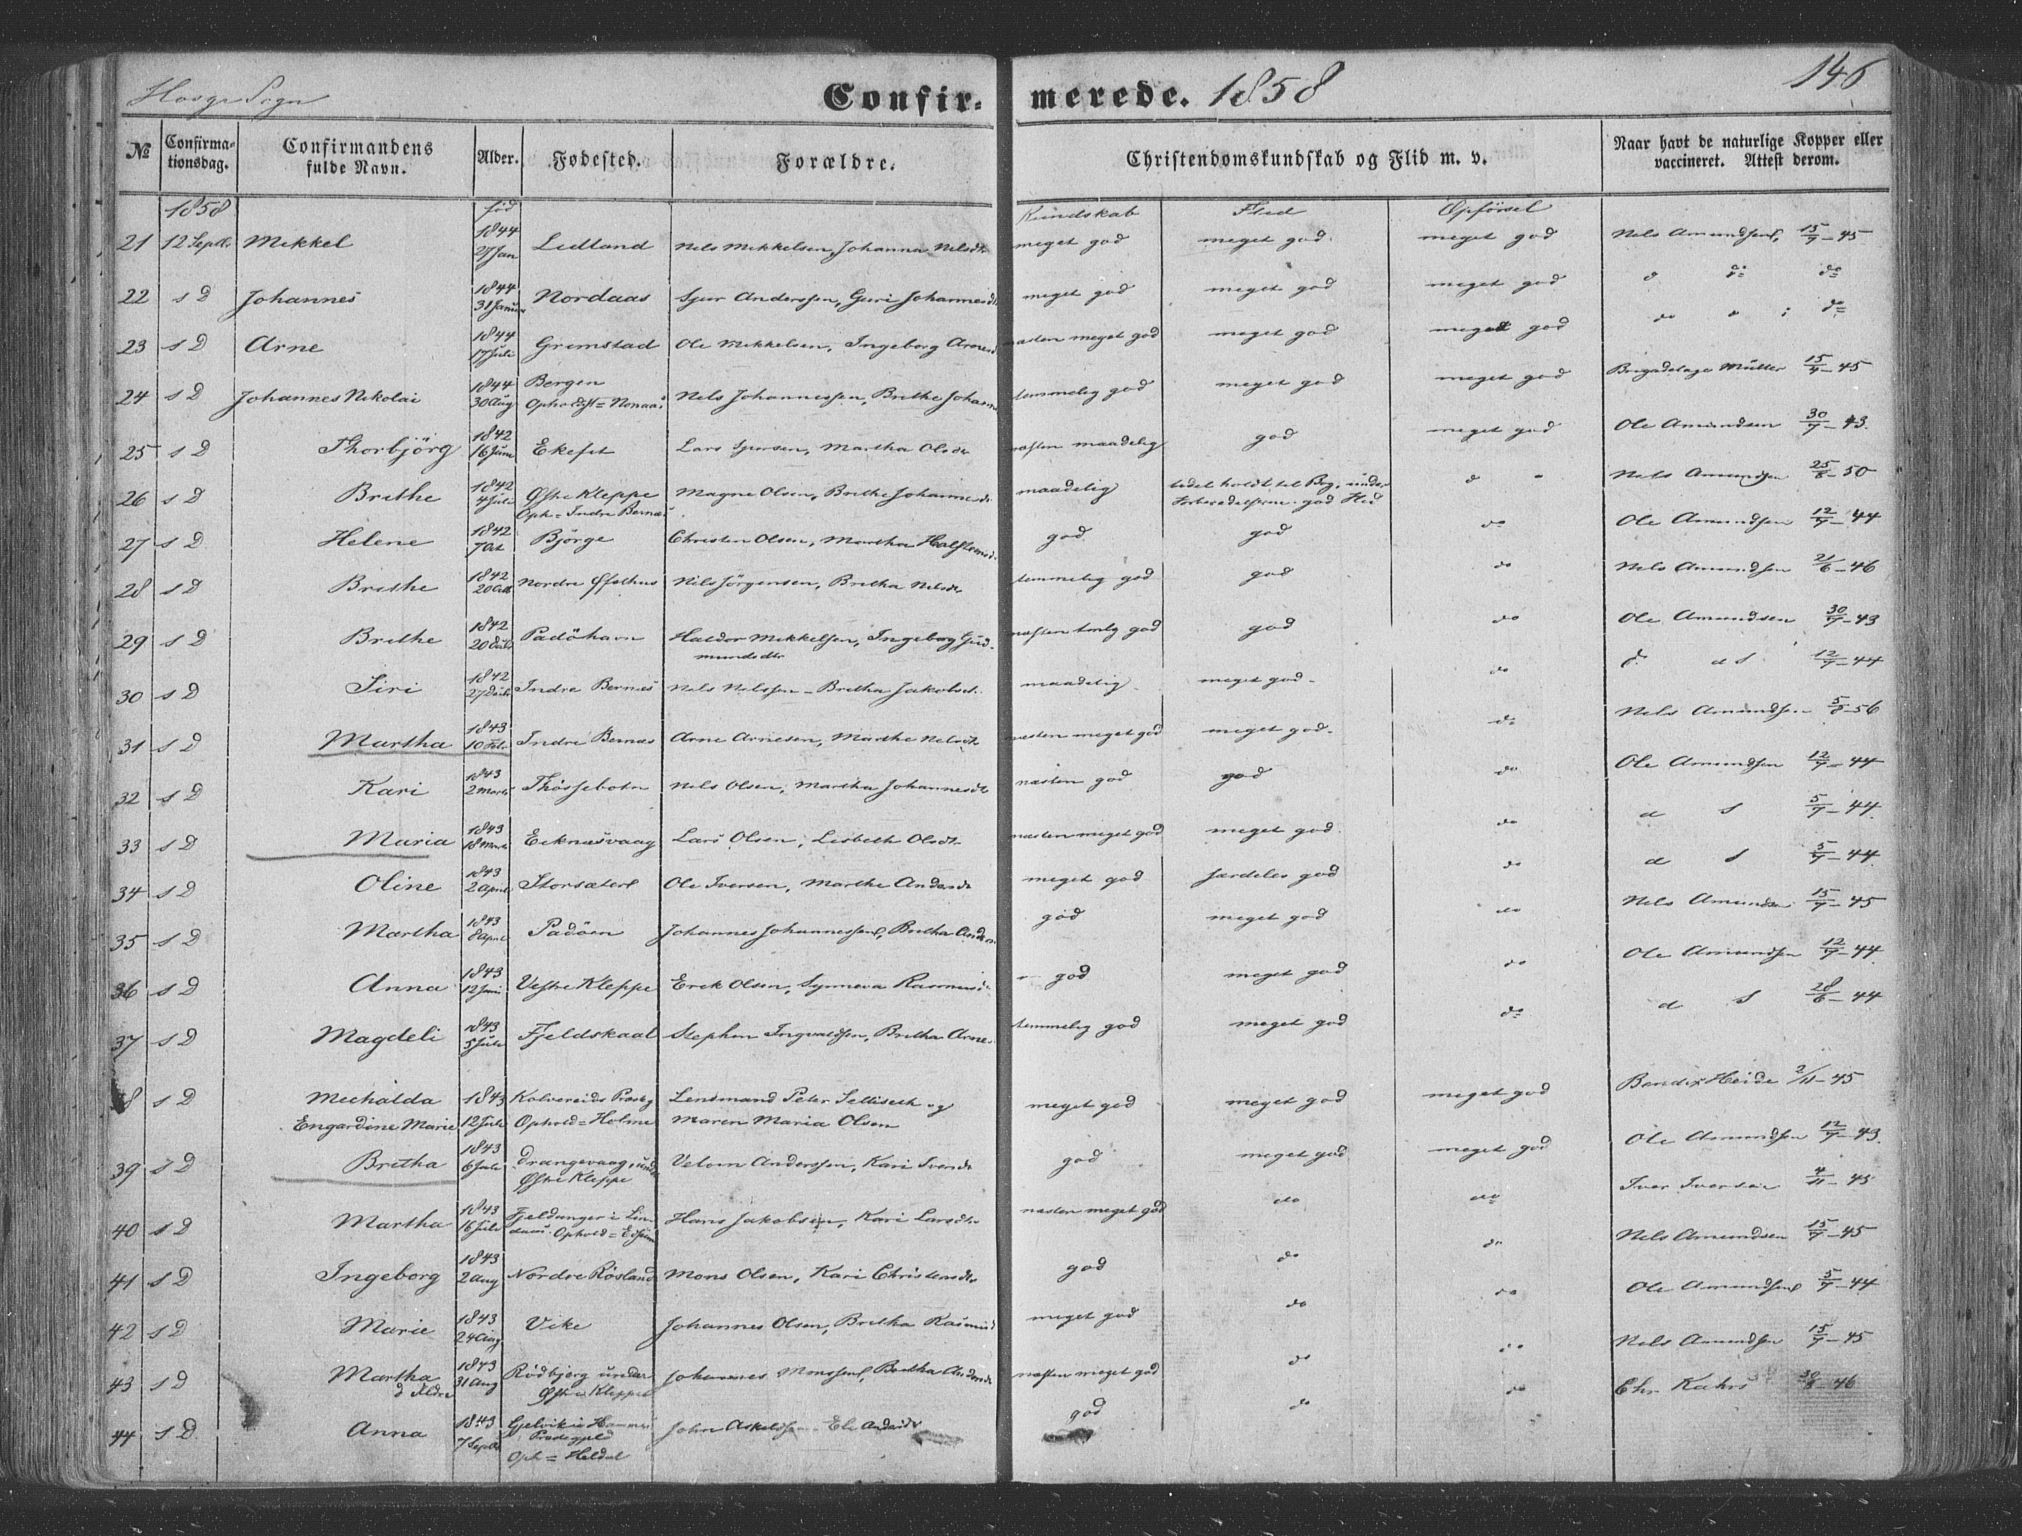 Hosge Sogn
Confirmerede. 1858
146
№
Confirmationsdag.
Confirmandens fulde Navn.
Alder.
Fødested.
Forældre.
Christendomskundskab og Flid m. v.
Naar havt de naturlige Kopper eller vaccineret. Attest derom.
1858 fød Kundskab Flid Opførsel
21 12 Septb. Mikkel 1844 27 Jan Lidtland Nils Mikkelsen, Johanna Nilsdt meget god meget god meget god Nils Amundsen, 15/7-45
22 s D Johannes 1844 31 Januar Nordaas Sjur Anderssen, Guri Johannesdt meget god meget god meget god d d: do
23 s D Arne 1844 17 Juli Grimstad Ole Mikkelsen, Ingeborg Arnesd næsten meget god meget god meget god do do
24 s D Johannes Nikolai 1844 30 Aug Bergen
Opholdst = Nonaas Nils Johannessen, Brithe Johann temmelig god meget god meget god Brigadelæge Müller 15/9-45
25 s D Thorbjörg 1842 16 Juni Ekeset Lars Sjursen, Martha Olsdtr næsten maadelig god meget god Ole Amundsen 30/7-43
26 s D Brithe 1842 4 Juli Østre Kleppe
Oph = Indre Bernæs Magne Olsen, Brithe Johannesdt maadelig lidet holdt til Bog, under
Forberedelsen god Flid d Nils Amundsen 25/8-50
27 s D Helene 1842 7 Oct Björge Christen Olsen, Martha Halstensd. god god do Ole Amundsen 12/7-44
28 s D Brithe 1842 20 Octb Nordre Øfsthus Nils Jörgensen, Britha Nilsdtr temmelig god god do Nils Amundsen 21/6-46
29 s D Brithe 1842 20 Padöhavn Haldor Mikkelsen, Ingeborg Gud-
mundsdtr næsten god god do Ole Amundsen 30/7-43
30 s D Siri 1842 27 Indre Bernæs Nils Nilssen - Britha Jakobsdt. maadelig meget god do d s 12/7-44
31 s D Martha 1843 10 Febr Indre Bernæs Arne Arnesen, Marthe Nilsdt næsten meget god meget god do Nils Amundsen 5/8-56
32 s D Kari 1843 2 Marts Thössebotn Nils Olsen, Martha Johannesdt næsten god god do Ole Amundsen 12/7-44
33 s D Maria 1843 18 Marts Eeknæsvaag Lars Olsen, Lisbeth Olsdt. næsten meget god meget god do d s 5/7-44
34 s D Oline 1843 2 April Storsæter Ole Iversen, Marthe Andersdt meget god særdeles god do d s 5/7-44
35 s D Martha 1843 8 April Padöen Johannes Johannessen, Britha Anders god meget god do Nils Amundsen 15/7-45
36 s D Anna 1843 12 Juni Vestre Kleppe Erik Olsen, Synneva Rasmusd. god meget god do Ole Amundsen 12/7-44
37 s D Magdeli 1843 5 Juli Fjeldskaal Stephen Ingvaldsen, Britha Arnes temmelig god meget god do d s 28/6-44
38 s D Mechalda 1843 Kolvereids Præstg Lensmand Peter Selliseth og meget god meget god meget god Bendix Heide 2/11-45
Engardine Marie 12 Juli Ophold = Holme Maren Maria Olsen
39 s D Britha 1843 6 Juli Drangevaag under
Østre Kleppe Anderssen, Kari Iversdt god meget god meget god Ole Amundsen 12/7-43
40 s D Martha 1843 16 Juli Fjeldanger i Lin-
daas. Ophold = Hans Jakobsen, Kari Larsdtr næsten meget god do do Iver Iversen 4/11-45
41 s D Ingeborg 1843 2 Aug Nordre Rösland Mons Olsen, Kari Christensdtr god do do Nils Amundsen 15/7-45
42 s D Marie 1843 24 Aug Vike Johannes Olsen, Britha Rasmusd meget god do do Ole Amundsen 5/7-44
43 s D Martha
d Ældre 1843 31 Aug Rödbjerg under
Østre Kleppe Johannes Monssen, Britha Andersdt næsten meget god do do Nils Amundsen 15/7-45
44 s D Anna 1843 7 Septb Gjelvik i Hammers
Prestegjeld
Oph = Heldal John Askeldsen Eli Andersdtr god do do Chr. Kahrs 30/8-46